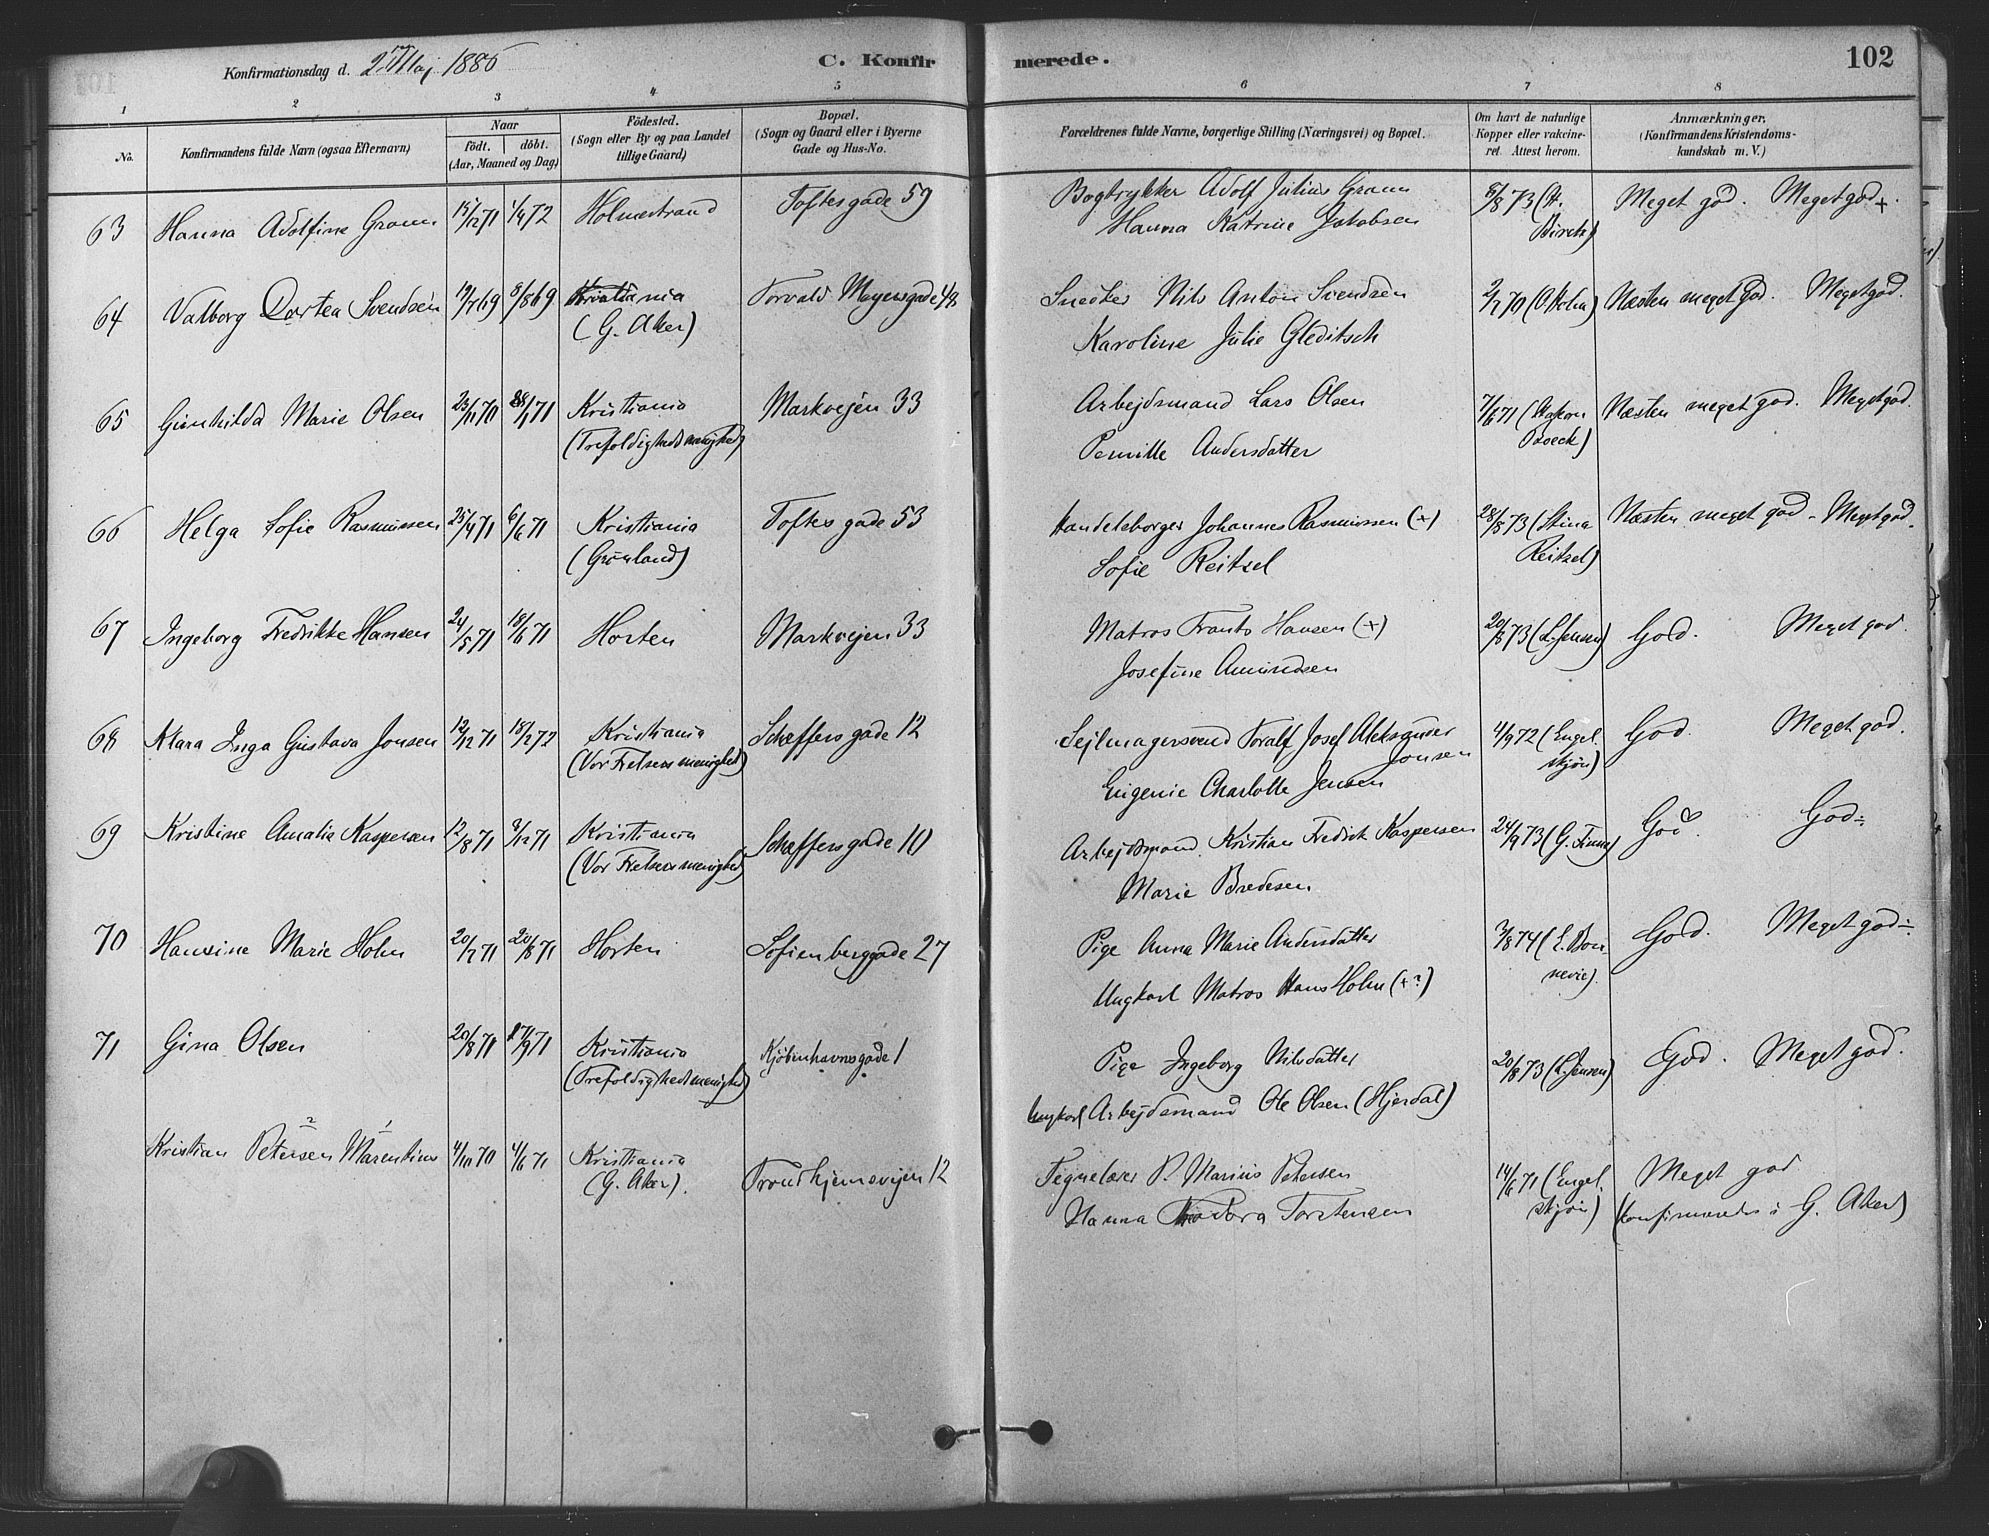 Konfirmationsdag d. 2 Maj 1886
C. Konfirmerede.
102
1 2 3 4 5 6 7 8
No.
Konfirmandens fulde Navn (ogsaa Efternavn)
Naar
födt. döbt.
(Aar, Maaned og Dag)
Födested.
(Sogn eller By og paa Landet
tillige Gaard)
Bopæl.
(Sogn og Gaard eller i Byerne
Gade og Hus-No.
Forældrenes fulde Navne, borgerlige Stilling (Næringsvei) og Bopæl.
Om havt de naturlige
Kopper eller vakcine-
ret. Attest herom.
Anmærkninger.
(Konfirmandens Kristendoms-
kundskab m. V.)
63 Hanna Adolfine Gram 15/12 71 1/4 72 Holmestrand Toftesgade 59 Bogtrykker Adolf Julius Gram 8/8 73 (H. Meget god. Meget god +.
Hanna Katrine Jakobsen Birch)
64 Valborg Dortea Svendsen 19/7 69 8/8 69 Kristiania Torvald Meyersgade 48 Snedker Nils Anton Svendsen 2/7 70 (O. Holm) Næsten meget god. Meget god.
(G. Aker) Karoline Julie Gleditsch
65 Gunhilda Marie Olsen 23/11 70 28/1 71 Kristiania Markvejen 33 Arbejdsmand Lars Olsen 7/6 71 (Hakon Næsten meget god. Meget god.
(Trefoldighedsmenighed) Pernille Andersdatter Boeck)
66 Helga Sofie Rasmussen 25/4 71 6/6 71 Kristiania Toftes gade 53 Handelsborger Johannes Rasmussen (+) 28/8 73 (Stina Næsten meget god - Meget god.
(Grønland) Sofie Reitzel Reitzel)
67 Ingeborg Fredrikke Hansen 24/5 71 18/6 71 Horten Markvejen 33 Matros Frants Hansen (+) 20/8 73 (L. Jensen) God. Meget god.
Josefine Amundsen
68 Klara Inga Gustava Jonsen 12/12 71 18/2 72 Kristiania Scheffers gade 12 Sejlmagersvend Toralf Josef Aleksander 4/9 72 (Engel- God. Meget god.
(Vor Frelsers menighed) Jonsen skjøn)
Eugenie Charlotte Jensen
69 Kristine Amalia Kaspersen 12/8 71 3/12 71 Kristiania Scheffers gade 10 Arbejdsmand Kristian Fredrik Kaspersen 24/9 73 (G. Finne) God. God ÷
(Vor Frelsers menighed) Marie Bredesen
70 Hansine Marie Holm 20/7 71 20/8 71 Horten Sofienberggade 27 Pige Anna Marie Andersdatter 3/8 74 (E. Bon- God. Meget god ÷.
Ungkarl Matros Hans Holm (+?) nevie).
71 Gina Olsen 20/8 71 17/9 71 Kristiania Kjøbenhavnsgade 1 Pige Ingeborg Nilsdatter 20/8 73 (L. Jensen) God. Meget god.
(Trefoldighedsmenighed) Ungkarl Arbejdsmand Ole Olsen (Hjerdal)
Kristian Petersen Marentius 4/10 70 4/6 71 Kristiania Trondhjemsvejen 12 Tegnelærer P. Marius Petersen 14/6 71 (Engel- Meget god
(G. Aker). Hanna Teodora Torstensen skjøn) (konfirmeredes i G. Aker)